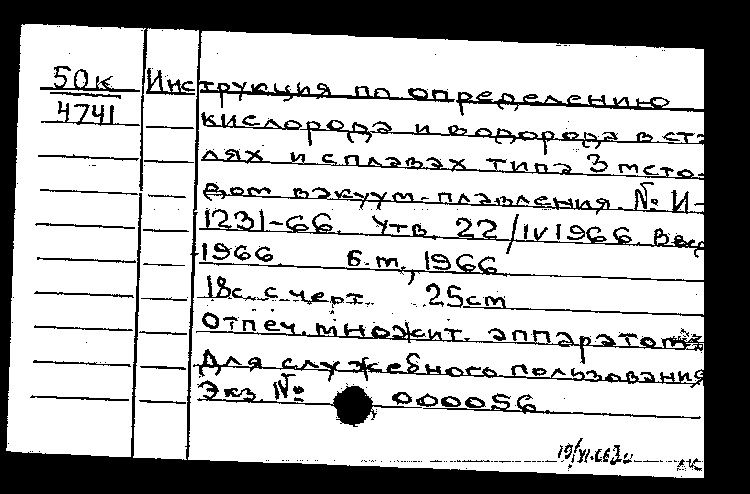 50к
4741
Инструкция по определению
кислорода и водорода в ста-
лях и сплавах типа З мето-
дом вакуум-плавления. № И-
1231-66. Утв. 22/IV 1966. Введ
1966. б.м., 1966
18с. с черт. 25cm
Отпеч. множит. аппаратом
Для служебного пользования
Экз. № 000056